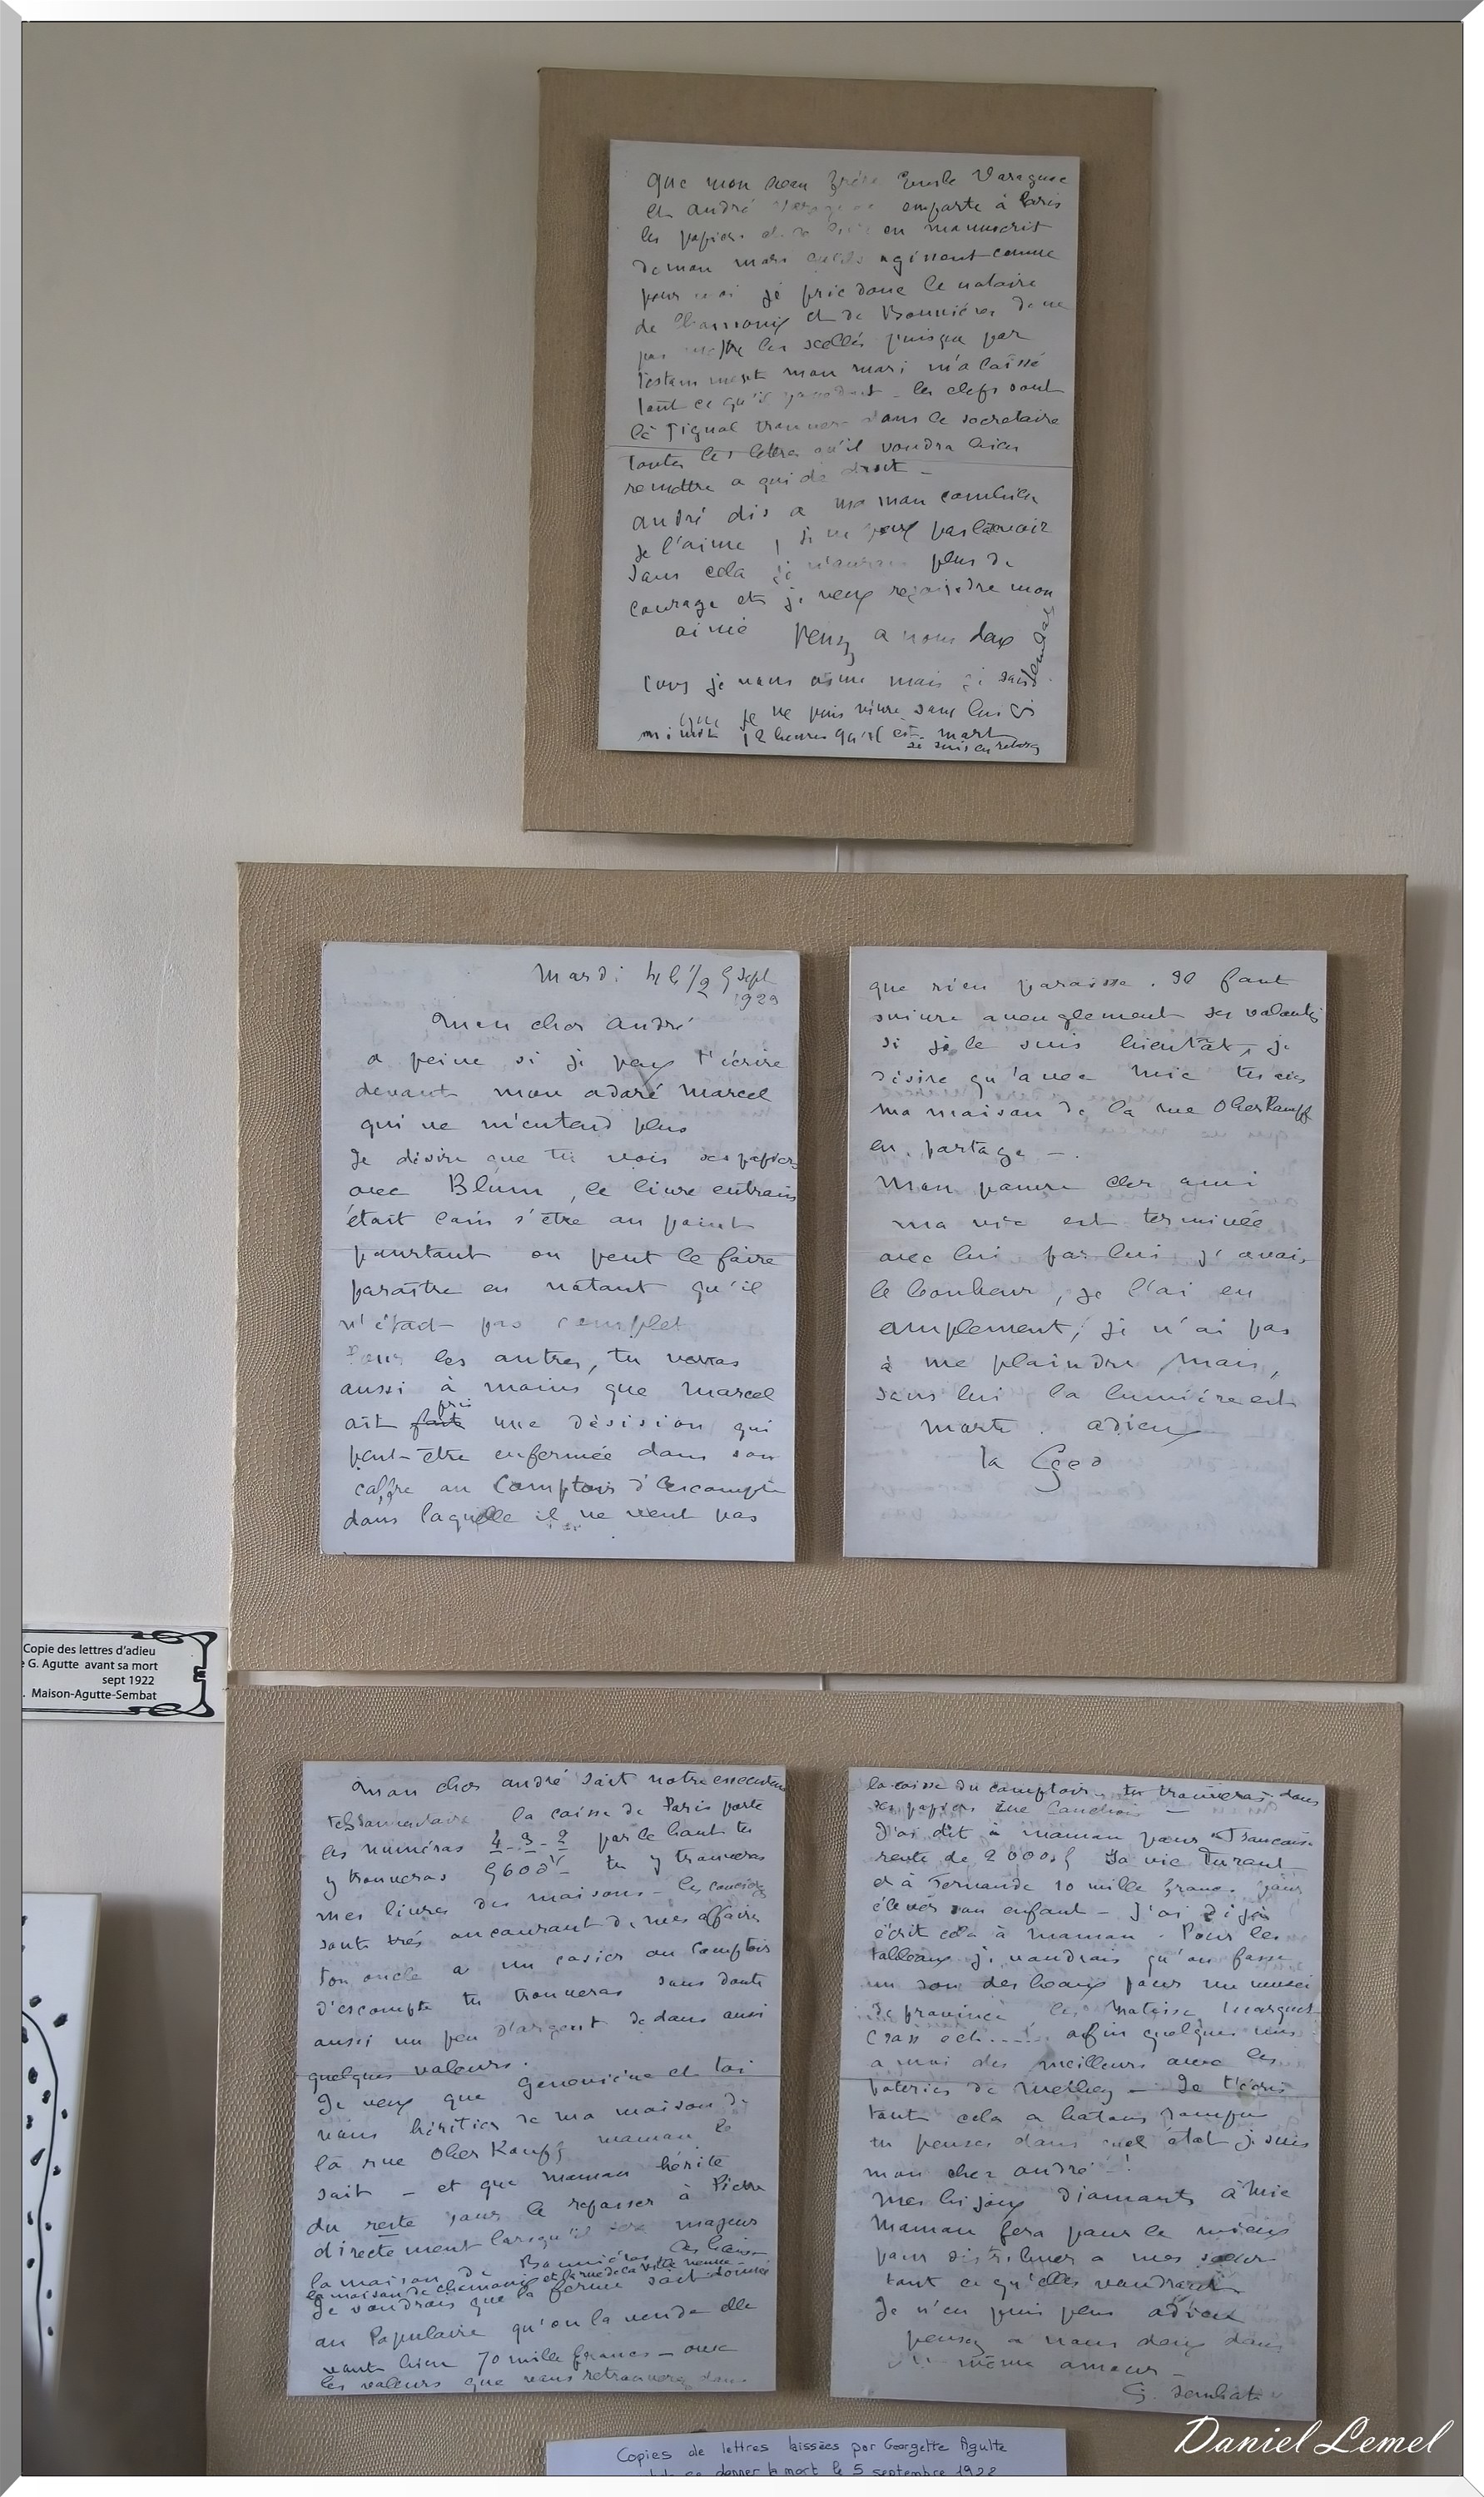 que mon beau frère Emile Varagnac
et André emporte à Paris
les papiers en manuscrit
de mon mari qu'ils agissent comme
pour moi je prie donc le notaire
de Chamonix et de Bonnières de ne
pas mettre les scellés puisque par
testament mon mari m'a laissé
tout ce qu'il - les clefs sont
là Tignal trouvera dans le secretaire
toutes les lettres qu'il voudra bien
remettre a qui de droit -
André dis a ma maman combien
je l'aime, je ne veux pas la revoir
sans cela je n'aurais plus de
courage et je veux rejoindre mon
aimé Pensez a nous deux
tous je vous aime mais je sais
que je ne puis vivre sans lui
minuit 12 heures qu'il est mort
je suis en retard
Mardi 4h 1/2 5 Sept
1922
Mon cher André
a peine si je peux t'écrire
devant mon adoré Marcel
qui ne m'entend plus
Je désire que tu vois ses papiers
avec Blum, le livre entrain
était loin s'être au point
pourtant on peut le faire
paraître en notant qu'il
n'était pas complet
Pour les autres, tu verras
aussi à moins que Marcel
ait faite pris une désision qui
peut-être enfermée dans son
coffre au Comptoir d'Escompte
dans laquelle il ne veut pas
que rien paraisse. Il faut
suivre aveuglement ses volontés
si je le suis bientôt, je
désire qu'avec Mie tu aies
ma maison de la rue Oberkampf
en partage -.
Mon pauvre cher ami
ma vie est terminée
avec lui par lui j'avais
le bonheur, je l'ai eu
amplement, je n'ai pas
à me plaindre, mais,
sans lui la lumière est
morte. adieu
ta Geo
Copie des lettres d'adieu
G. Agutte avant sa mort
sept 1922
. Maison-Agutte-Sembat
Mon cher André soit notre executeur
testamentaire la caisse de Paris porte
les numéros 4-3-2 par le haut tu
y trouveras 5600 - tu y trouveras
mes livres des maisons - les concierges
sont très au courant de mes affaires
ton oncle a un casier au Comptoir
d'escompte tu trouveras sans doute
aussi un peu d'argent dedans aussi
quelques valeurs.
Je veux que Geneviève et toi
vous héritiez de ma maison de
la rue Oberkampf maman le
sait - et que maman hérite
du reste pour le repasser à Pierre
directement lorsqu'il sera majeur
la maison de Bonnières les biens
la maison de chamonix et la rue de la ville neuve -
Je voudrais que la ferme soit donnée
au Populaire qu'on la vende elle
vaut bien 70 mille francs - avec
les valeurs que vous retrouverez dans
la caisse du comptoir. tu trouveras dans
ses papiers rue Cauchois -
J'ai dit à maman pour Françoise
rente de 2000 f sa vie durant
et à Fernande 10 mille francs pour
élever son enfant - J'ai déjà
écrit cela à maman. Pour les
tableaux je voudrais qu'on fasse
un don des beaux pour un musée
de province les Matisse, Marquet
Cross ect..... afin quelques uns
a moi des meilleurs avec les
poteries de Metthey - Je t'écris
tout cela a batons rompu
tu penses dans quel état je suis
mon cher André - !
Mes bijoux diamants à Mie
Maman fera pour le mieux
pour distribuer a mes soeurs
tout ce qu'elles voudront
Je n'en puis plus adieu
pensez a nous deux dans
le même amour -
G. Sembat
Copies de lettres laissées par Georgette Agutte
donner la mort le 5 septembre 1922
Daniel Lemel